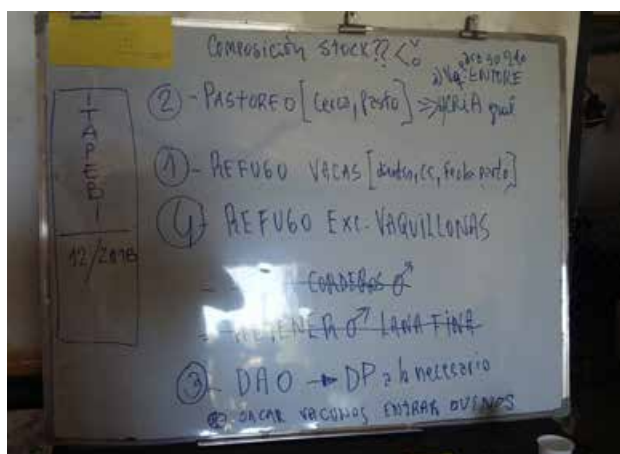 Composición Stock?? <
ENTORE
② - PASTOREO [Cerca, Pasto] ⇒ CRIA
① - REFUGO VACAS [dientes, CC, fecha parto]
④ REFUGO EXC. VAQUILLONAS
- CORDEROS ♂
- RETENER ♂ LANA FINA
③ - DAO → DP a lo necesario
SACAR VACUNOS ENTRAR OVINOS
ITAPEBI
12/2018